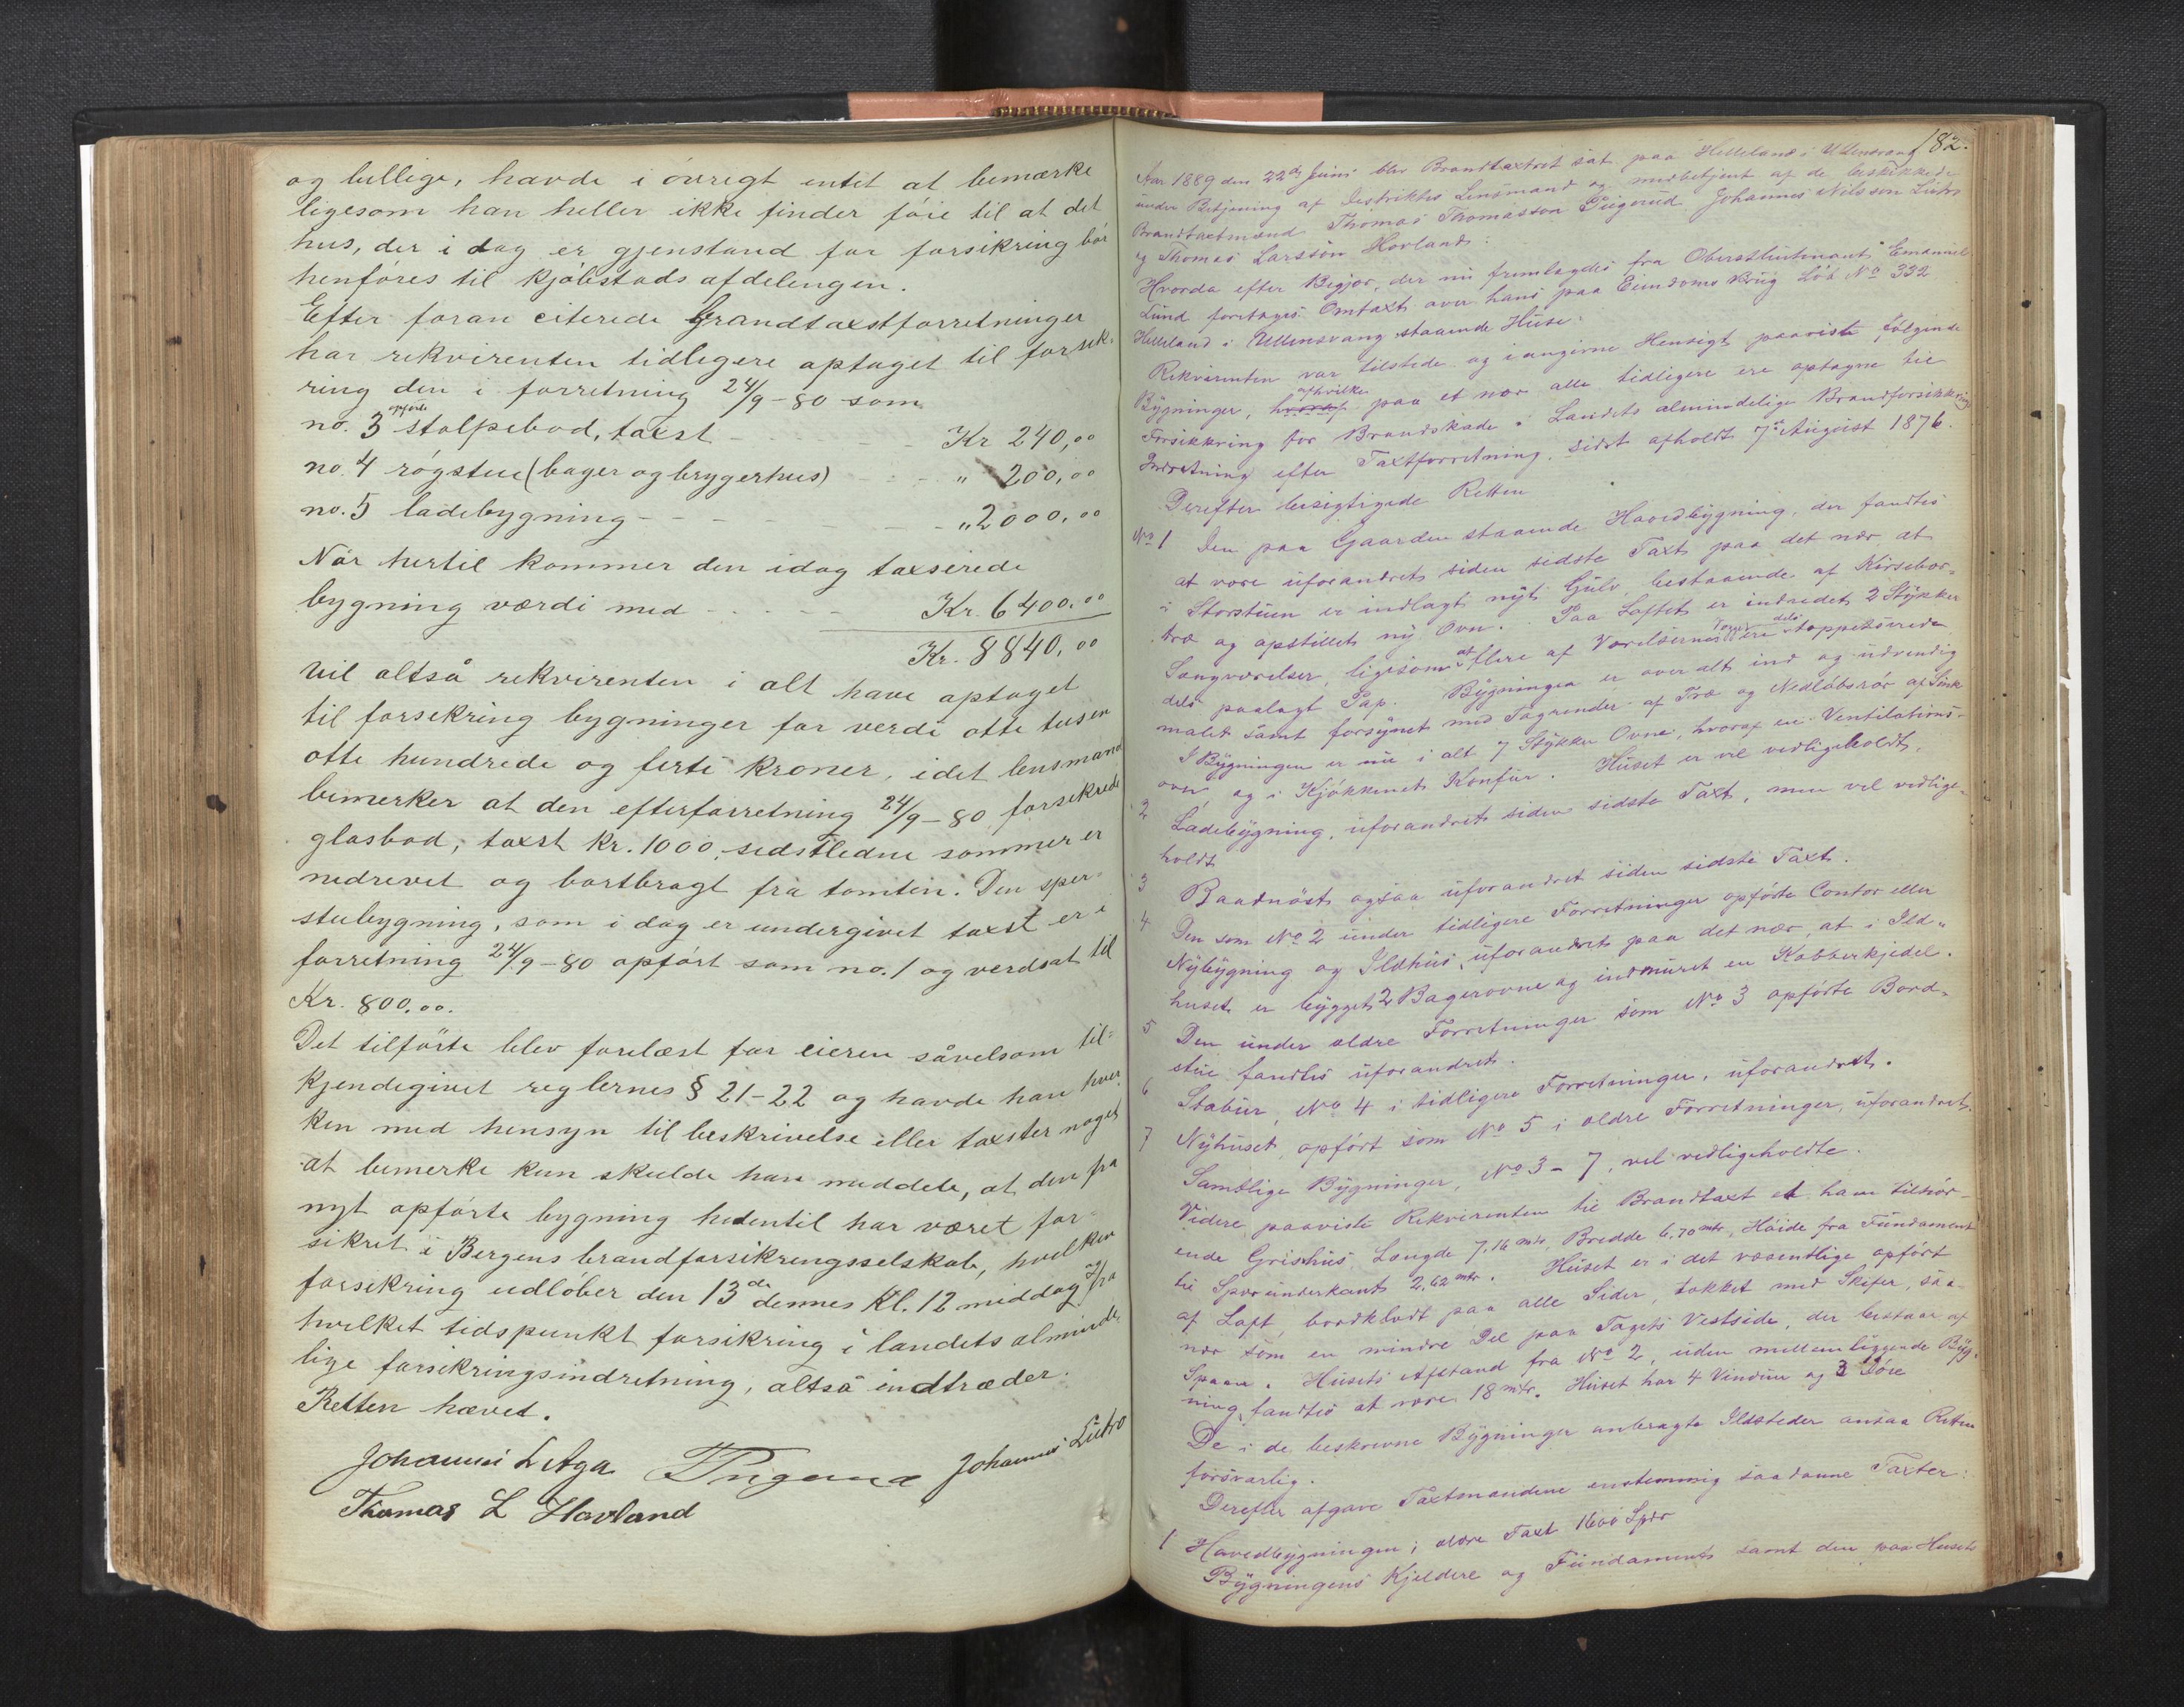 og billige, havde i övregt intet at bemærke
ligesom han heller ikke finder föie til at det
hus, der i dag er gjenstand for forsikring bör
henföres til kjöbstads afdelingen.
Efter foran citerede brandtaxstforretninger
har rekvirenten tidligere optaget til forsik-
ring den i forretning 24/9-80 som
no. 3 opförte stolpebod, taxst - - - - Kr 240,00
no. 4 rögstue (bager og brygerhus) - - - " 200,00
no. 5 ladebygning - - - - - - - "2000,00
Når hertil kommer den idag taxserede
bygning værdi med - - - - - Kr. 6400.00
Kr. 8840,00
vil altså rekvirenten i alt have optaget
til forsekring bygninger for verdi otte tusen
otte hundrede og firti kroner, idet lensmand
bemerker at den efterforretning 24/9-80 forsikrede
glasbod, taxst kr. 1000, sidstledne sommer er
nedrevet og bortbragt fra tomten. Den sper-
stubygning, som i dag er undergivet taxst er i
forretning 24/9-80 opfört som no. 1 og verdsat til
Kr. 800,00.
Det tilförte blev forelæst for eieren såvelsom til-
kjendegivet reglernes § 21-22 og havde han hver
ken med hensyn til beskrivelse eller taxster noget
at bemerke kun skulde han meddele, at den på
nyt opförte bygning hedentil har været for-
sikret i Bergens brandforsikringsselskab, hvilken
forsekring udlöber den 13de dennes Kl. 12 middag fra
hvilket tidspunkt forsikring i landets alminde-
lige forsikringsindretning, altså indtræder.
Retten hævet.
Johannes L Aga Johannes Lutro
Thomas L Hovland
182.
Aar 1889 den 22de Juni blev Brandtaxtret sat paa Helleland i Ullensvang
under Betjening af Distriktets Lensmand og medbetjent af de beskikkede
Brandtaxtmænd Thomas Thomasson Johannes Nilsson Lutro
og Thomas Larsson Hovland:
Hvorda efter Begjær, der nu fremlagdes fra Oberstlieutinant Emanuel
Lund foretoges Omtaxt over hans paa Eiendoms Brug Löb No 332
Helleland i Ullensvang staaende Huse.
Rekvirenten var tilstede og i angivne Hensigt paaviste fölgende
Bygninger, hvoraf afhvilke paa et nær alle tidligere ere optagne til
Forsikkring for Brandskade i Landets almindelige Brandforsikkrings
Indretning efter Taxtforretning, sidst afholdt 7de August 1876.
Derefter besigtigede Retten
No 1 Den paa Gaarden staaende Hovedbygning, der fandtes
at være uforandret siden sidste Taxt paa det nær, at
i Storstuen er indlagt nyt Gulv, bestaaende af Kirsebær-
træ og opstillet ny Ovn. Paa Loftet er indredet 2 Stykker
Sengværelser, ligesom at flere af Værelsernes ere dels tappetserede
dels paalagt Pap. Bygningen er over alt ind og udvendig
malet samt forsynet med Tagrender af Træ og Nedlöbsrör af Sink
I Bygningen er nu i alt 7 Stykker Ovne, hvoraf en Ventilations-
ovn, og i Kjökkenet Komfur. Huset er vel vedligeholdt.
2 Ladebygning, uforandret siden sidste Taxt, men vel vedlige-
holdt
3 Baadnöst ogsaa uforandret siden sidste Taxt.
4 Den som No 2 under tidligere Forretninger opförte Contor eller
Nybygning og Ildhus, uforandret paa det nær, at i Ild-
huset er bygget 2 Bagerovne og indmuret en Kobberkjedel.
5 Den under ældre Forretninger som No 3 opförte Bord-
stue fandtes uforandret.
6 Stabur, No 4 i tidligere Forretninger, uforandret.
7 Nyhuset, opfört som No 5 i ældre Forretninger, uforandret.
Samtlige Bygninger, No 3 - 7, vel vedligeholdte.
Videre paaviste Rekvirenten til Brandtaxt et ham tilhör-
ende Grisehus, Længde 7,16 mtr, Bredde 6,70 mtr, Höide fra Fundament
til Sperunderkant 2,62 mtr. Huset er i det væsentlige opfört
af Laft, bordklædt paa alle Sider, tækket med Skifer, saa
nær som en mindre Del paa Tagets Vestside, der bestaar af
Spaan. Husets Afstand fra No 2, uden mellemliggende Byg-
ning, fandtes at være 18 mtr. Huset har 4 Vinduer og 3 Döre
De i de beskrevne Bygninger anbragte Ildsteder ansaa Retten
forsvarlig.
Derefter afgave Taxtmændene enstemmig saadanne Taxter:
1 Hovedbygningen; ældre Taxt 1600 Spdr
Bygningens Kjeldere og Fundament samt den paa Husets